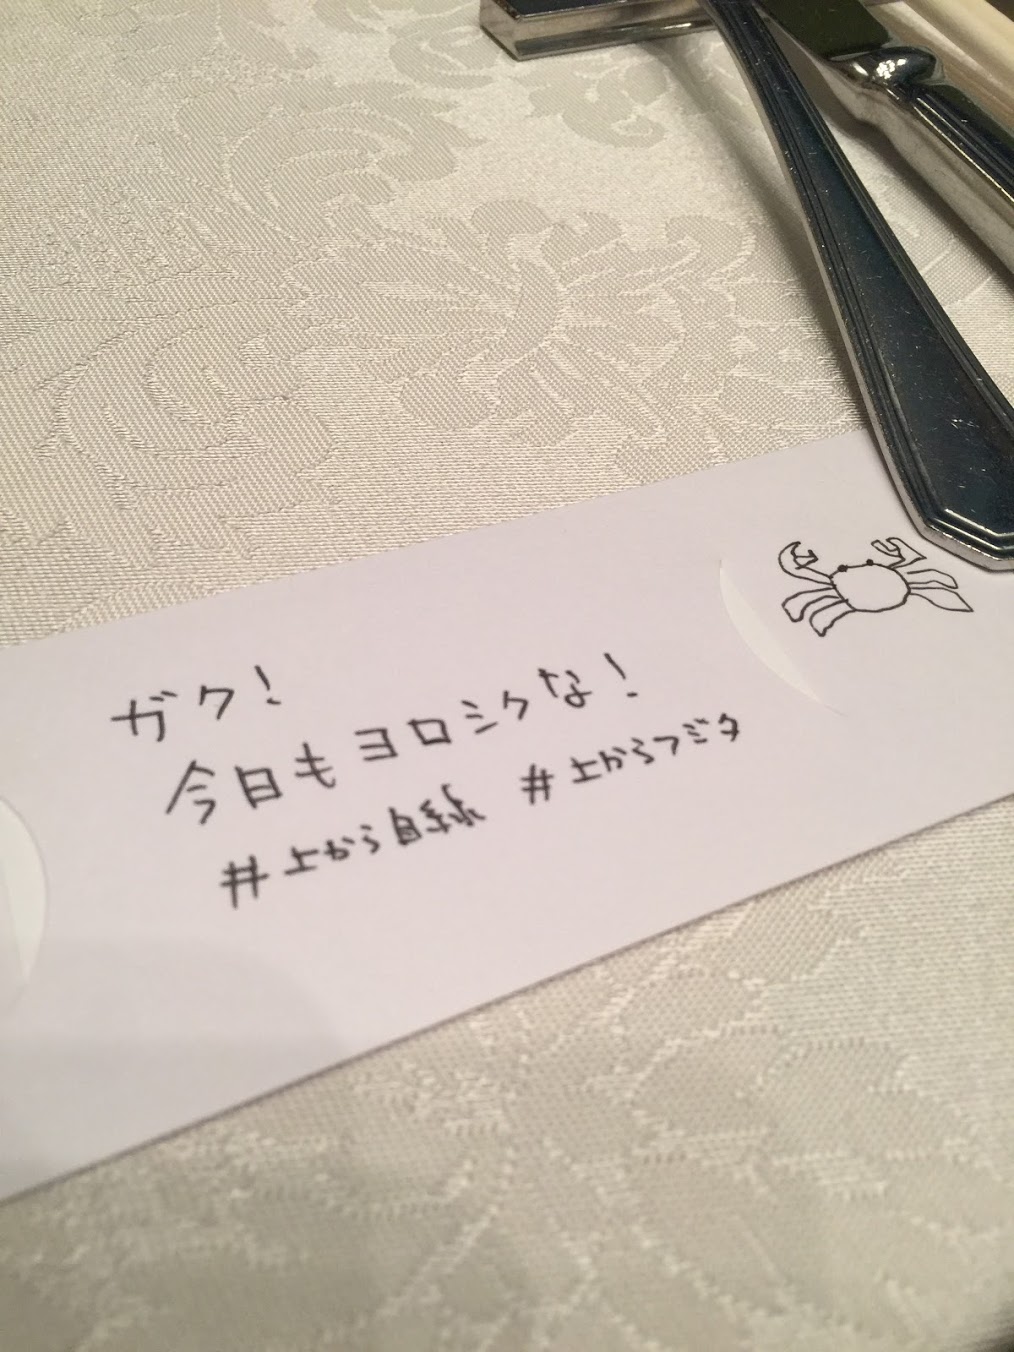 ガク!
今日もヨロシクな!
#上から目線 #上からフジタ